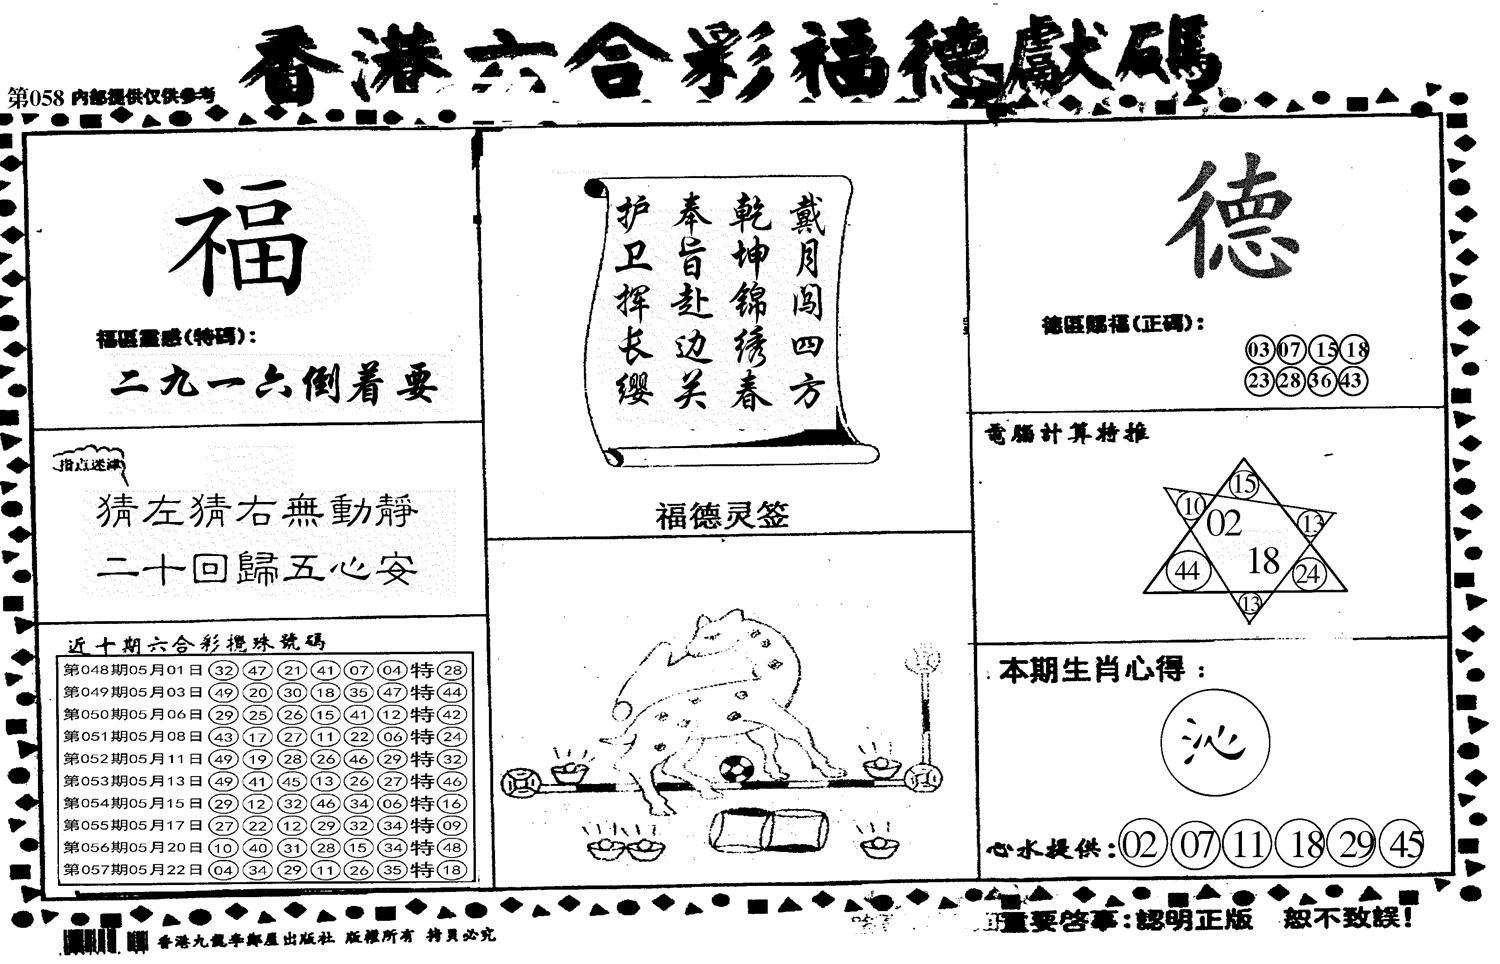 香港六合彩福德獻碼
第058 内部提供仅供参考
福
福區靈感(特碼):
二九一六倒着要
指点迷津
猜左猜右無動靜
二十回歸五心安
近十期六合彩攪珠號碼
第048期05月01日 32 47 21 41 07 04 特 28
第049期05月03日 49 20 30 18 35 47 特 44
第050期05月06日 29 25 26 15 41 12 特 42
第051期05月08日 43 17 27 11 22 06 特 24
第052期05月11日 49 19 28 26 46 29 特 32
第053期05月13日 49 41 45 13 26 27 特 46
第054期05月15日 29 12 32 46 34 06 特 16
第055期05月17日 27 22 12 29 32 34 特 09
第056期05月20日 10 40 31 28 15 34 特 48
第057期05月22日 04 34 29 11 26 35 特 18
戴月闯四方
乾坤錦绣春
奉旨赴边关
护卫挥长缨
福德灵签
德
德區賜福(正碼):
03 07 15 18
23 28 36 43
電腦計算特推
15
10 02 13
44 18 24
13
本期生肖心得:
沁
心水提供: 02 07 11 18 29 45
香港九龍李鄭屋出版社 版權所有 拷貝必究
重要啓事:認明正版 恕不致誤!